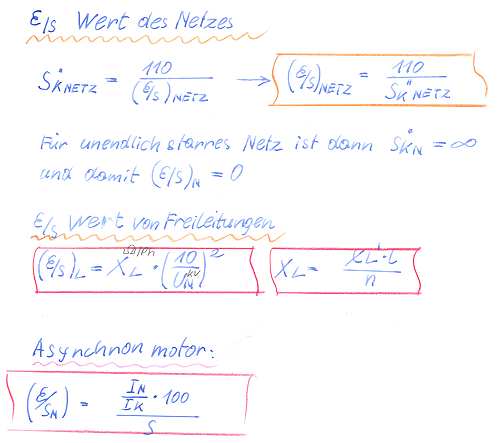 ε/s Wert des Netzes
S"KNETZ = 110/(ε/s)NETZ → (ε/s)NETZ = 110/S"KNETZ
Für unendlich starres Netz ist dann S"KN = ∞
und damit (ε/s)N = 0
ε/s Wert von Freileitungen
(ε/s)L = XL Ω/Ph · (10/UN kV)² XL = XL' · L/n
Asynchron motor:
(ε/SN) = IN/IK · 100/S